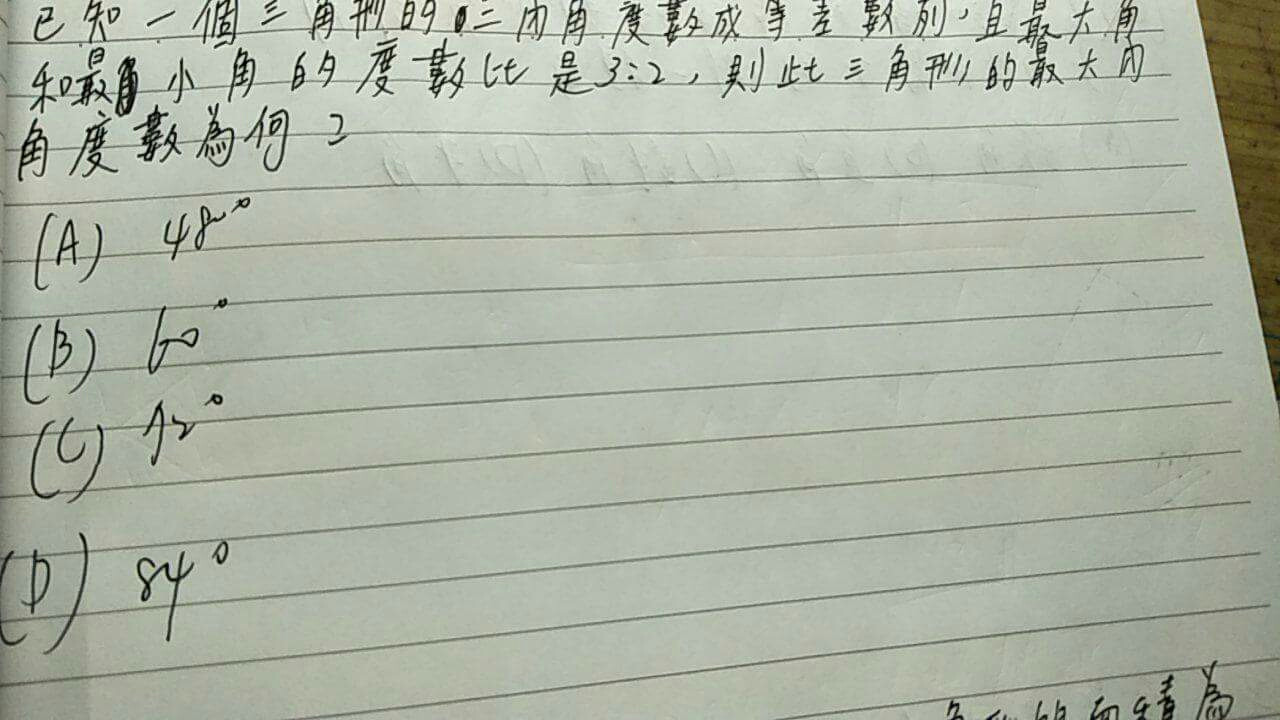 已知一個三角形的三內角度數成等差數列,且最大角
和最小角的度數比是3:2,則此三角形的最大內
角度數為何?
(A) 48°
(B) 60°
(C) 72°
(D) 84°
的面積為